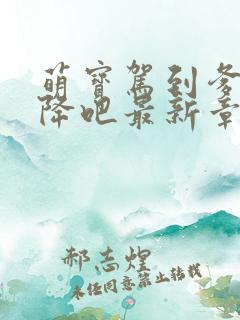 萌宝驾到爹
降吧最新章
郝志煌
未经同意禁止转载